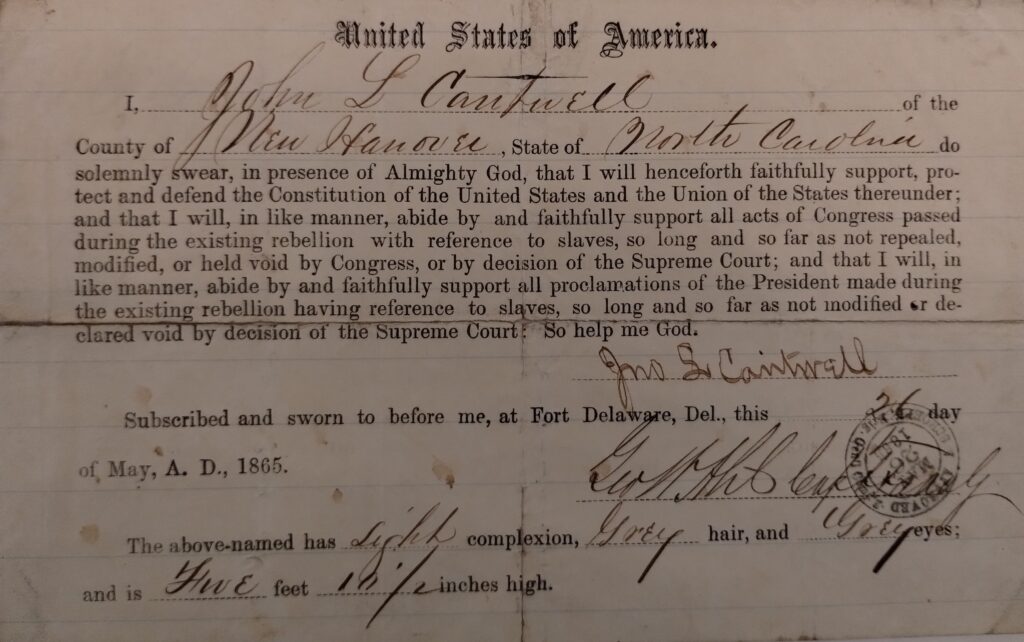 United States of America.
I, John L Cantwell of the
County of New Hanover, State of North Carolina do
solemnly swear, in presence of Almighty God, that I will henceforth faithfully support, pro-
tect and defend the Constitution of the United States and the Union of the States thereunder;
and that I will, in like manner, abide by and faithfully support all acts of Congress passed
during the existing rebellion with reference to slaves, so long and so far as not repealed,
modified, or held void by Congress, or by decision of the Supreme Court; and that I will, in
like manner, abide by and faithfully support all proclamations of the President made during
the existing rebellion having reference to slaves, so long and so far as not modified or de-
clared void by decision of the Supreme Court: So help me God.
Jno L Cantwell
Subscribed and sworn to before me, at Fort Delaware, Del., this 26 day
of May, A. D., 1865.
Geo W Ahl Cap
The above-named has Light complexion, Grey hair, and Grey eyes;
and is Five feet inches high.